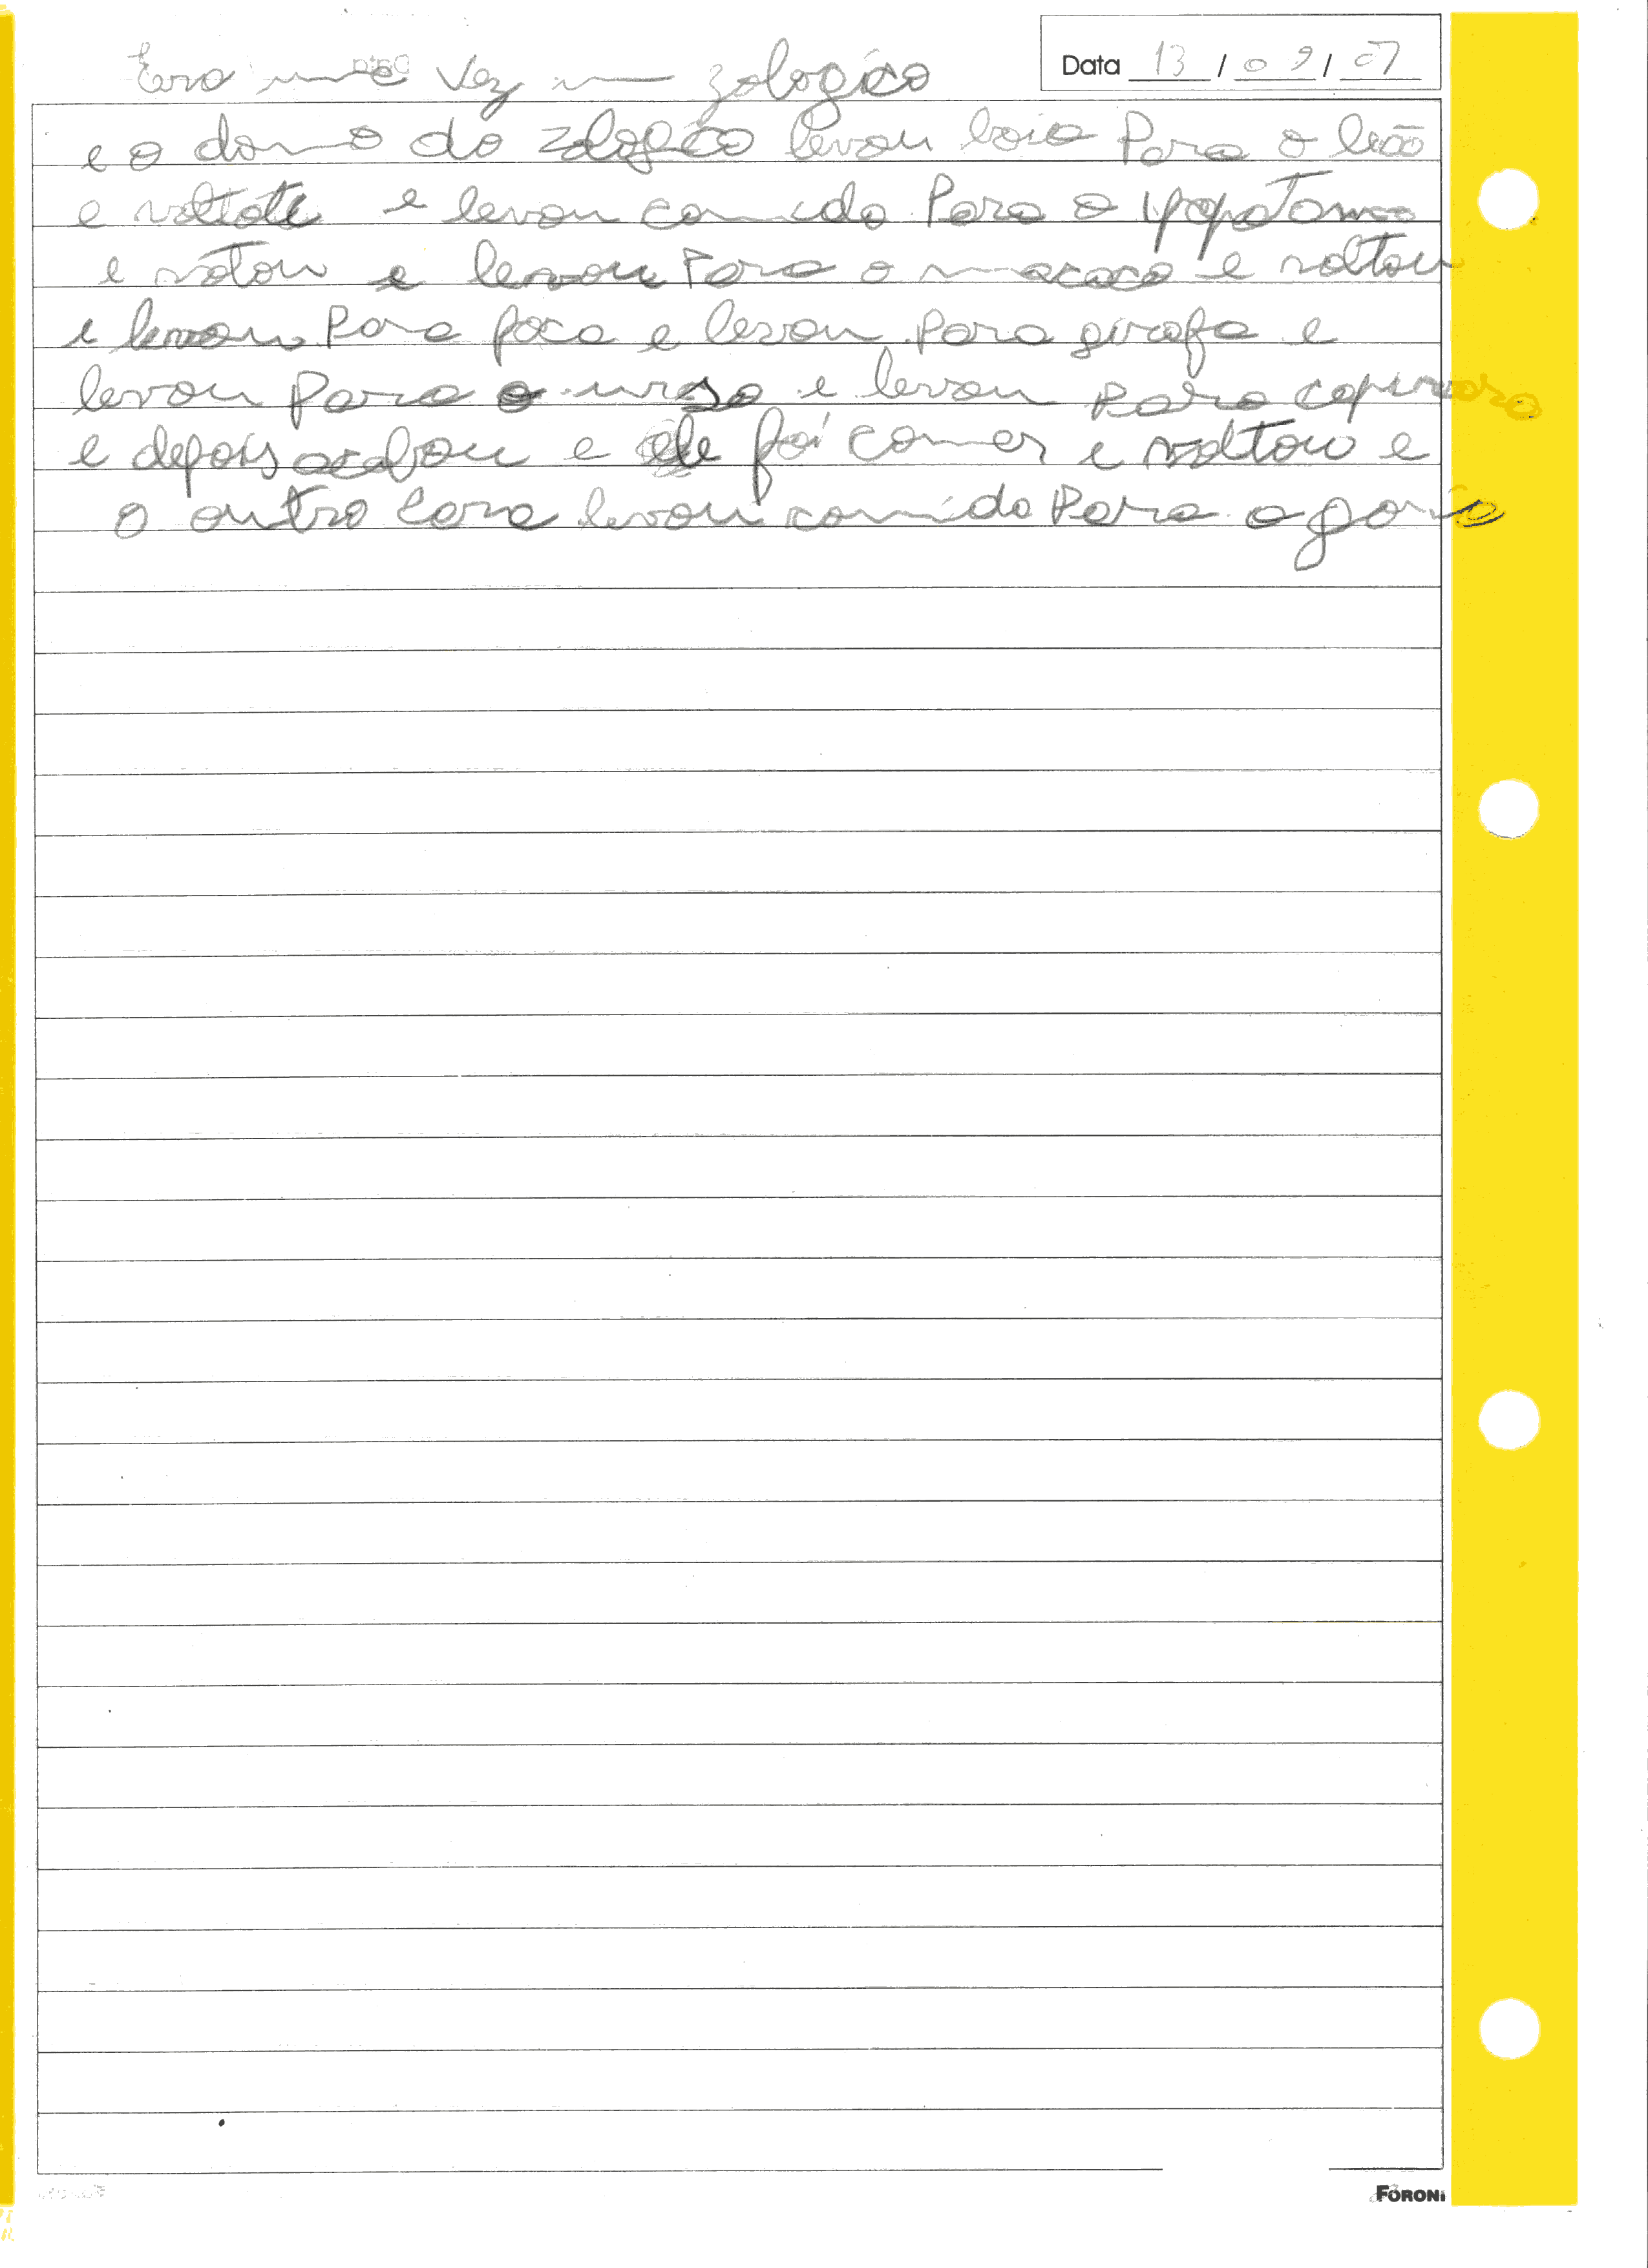 Era uma vez um zologico
Data 13 / 09 / 07
e o dono do zologico levou boia para o leão
e e levou comida para o ipopotamo
e votou e levou Para o macaco e voltou
e levou Para foca e levou para girafa e
levou para o urso e levou para capivara
e depois acabou e ele foi comer e voltou e
o outro cara levou comida Para o
FORONI